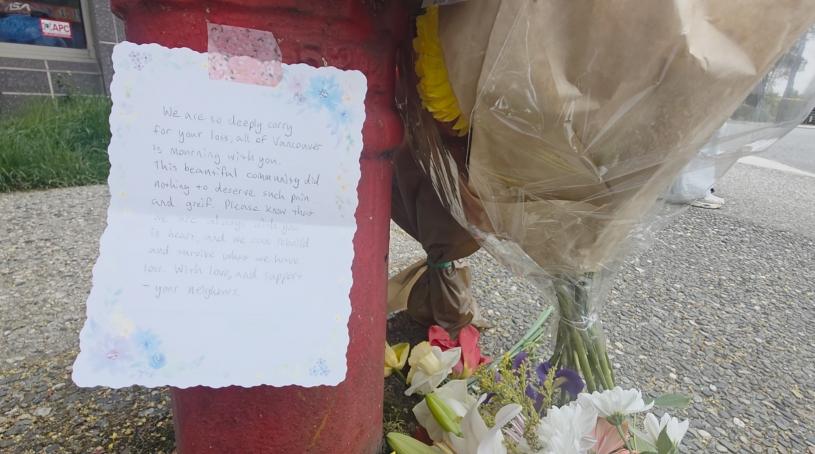 APC
We are so deeply sorry
for your loss, all of Vancouver
is mourning with you.
This beautiful community did
nothing to deserve such pain
and greif. Please know that
we are always with you
is heart, and we can rebuild
and survive what we have
lost. With love, and support
- your neighbours